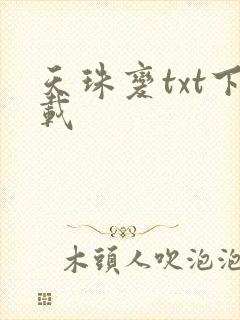 天珠變txt下
載
木頭人吹泡泡